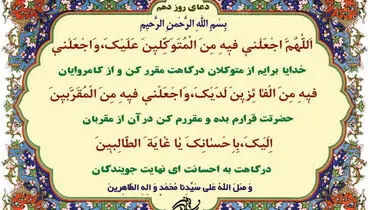 دعای روز دهم
بِسْمِ اللَّهِ الرَّحْمنِ الرَّحیمِ
اَللّهُمَّ اجْعَلْنی فیهِ مِنَ الْمُتَوَکِّلینَ عَلَیْکَ،وَاجْعَلْنی
خدایا برایم از متوکلان درگاهت مقرر کن و از کامروایان
فیهِ مِنَ الْفاَّئِزینَ لَدَیْکَ،وَاجْعَلْنی فیهِ مِنَ الْمُقَرَّبینَ
حضرتت قرارم بده و مقررم کن در آن از مقربان
اِلَیْکَ،بِاِحْسانِکَ یا غایَةَ الطّالِبینَ
درگاهت به احسانت ای نهایت جویندگان
وَ صَلَّ اللهُ عَلی سَیِّدِنا مُحَمَّد وَ الِهِ الطّاهِرینَ